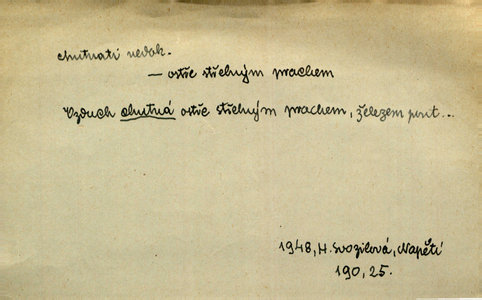 chutnati nedok.
— ostře střelným prachem
Vzduch chutná ostře střelným prachem, železem
1948, H. Svozilová, Napětí
190, 25.